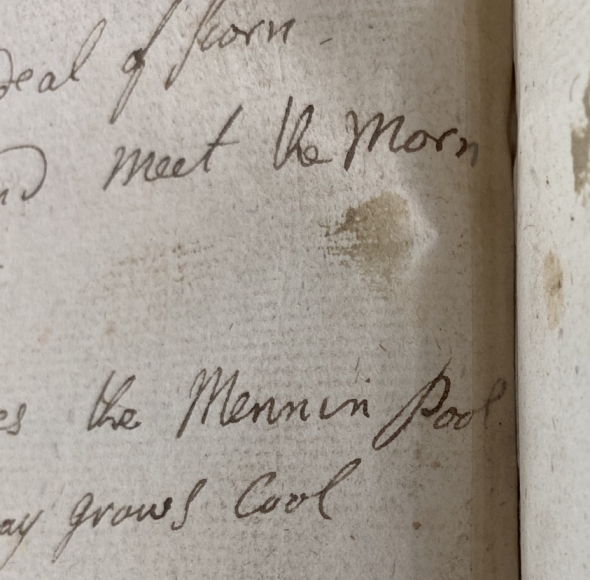 deal of scorn -
nd meet the Morn
es the Mennin Pool
ay grows Cool